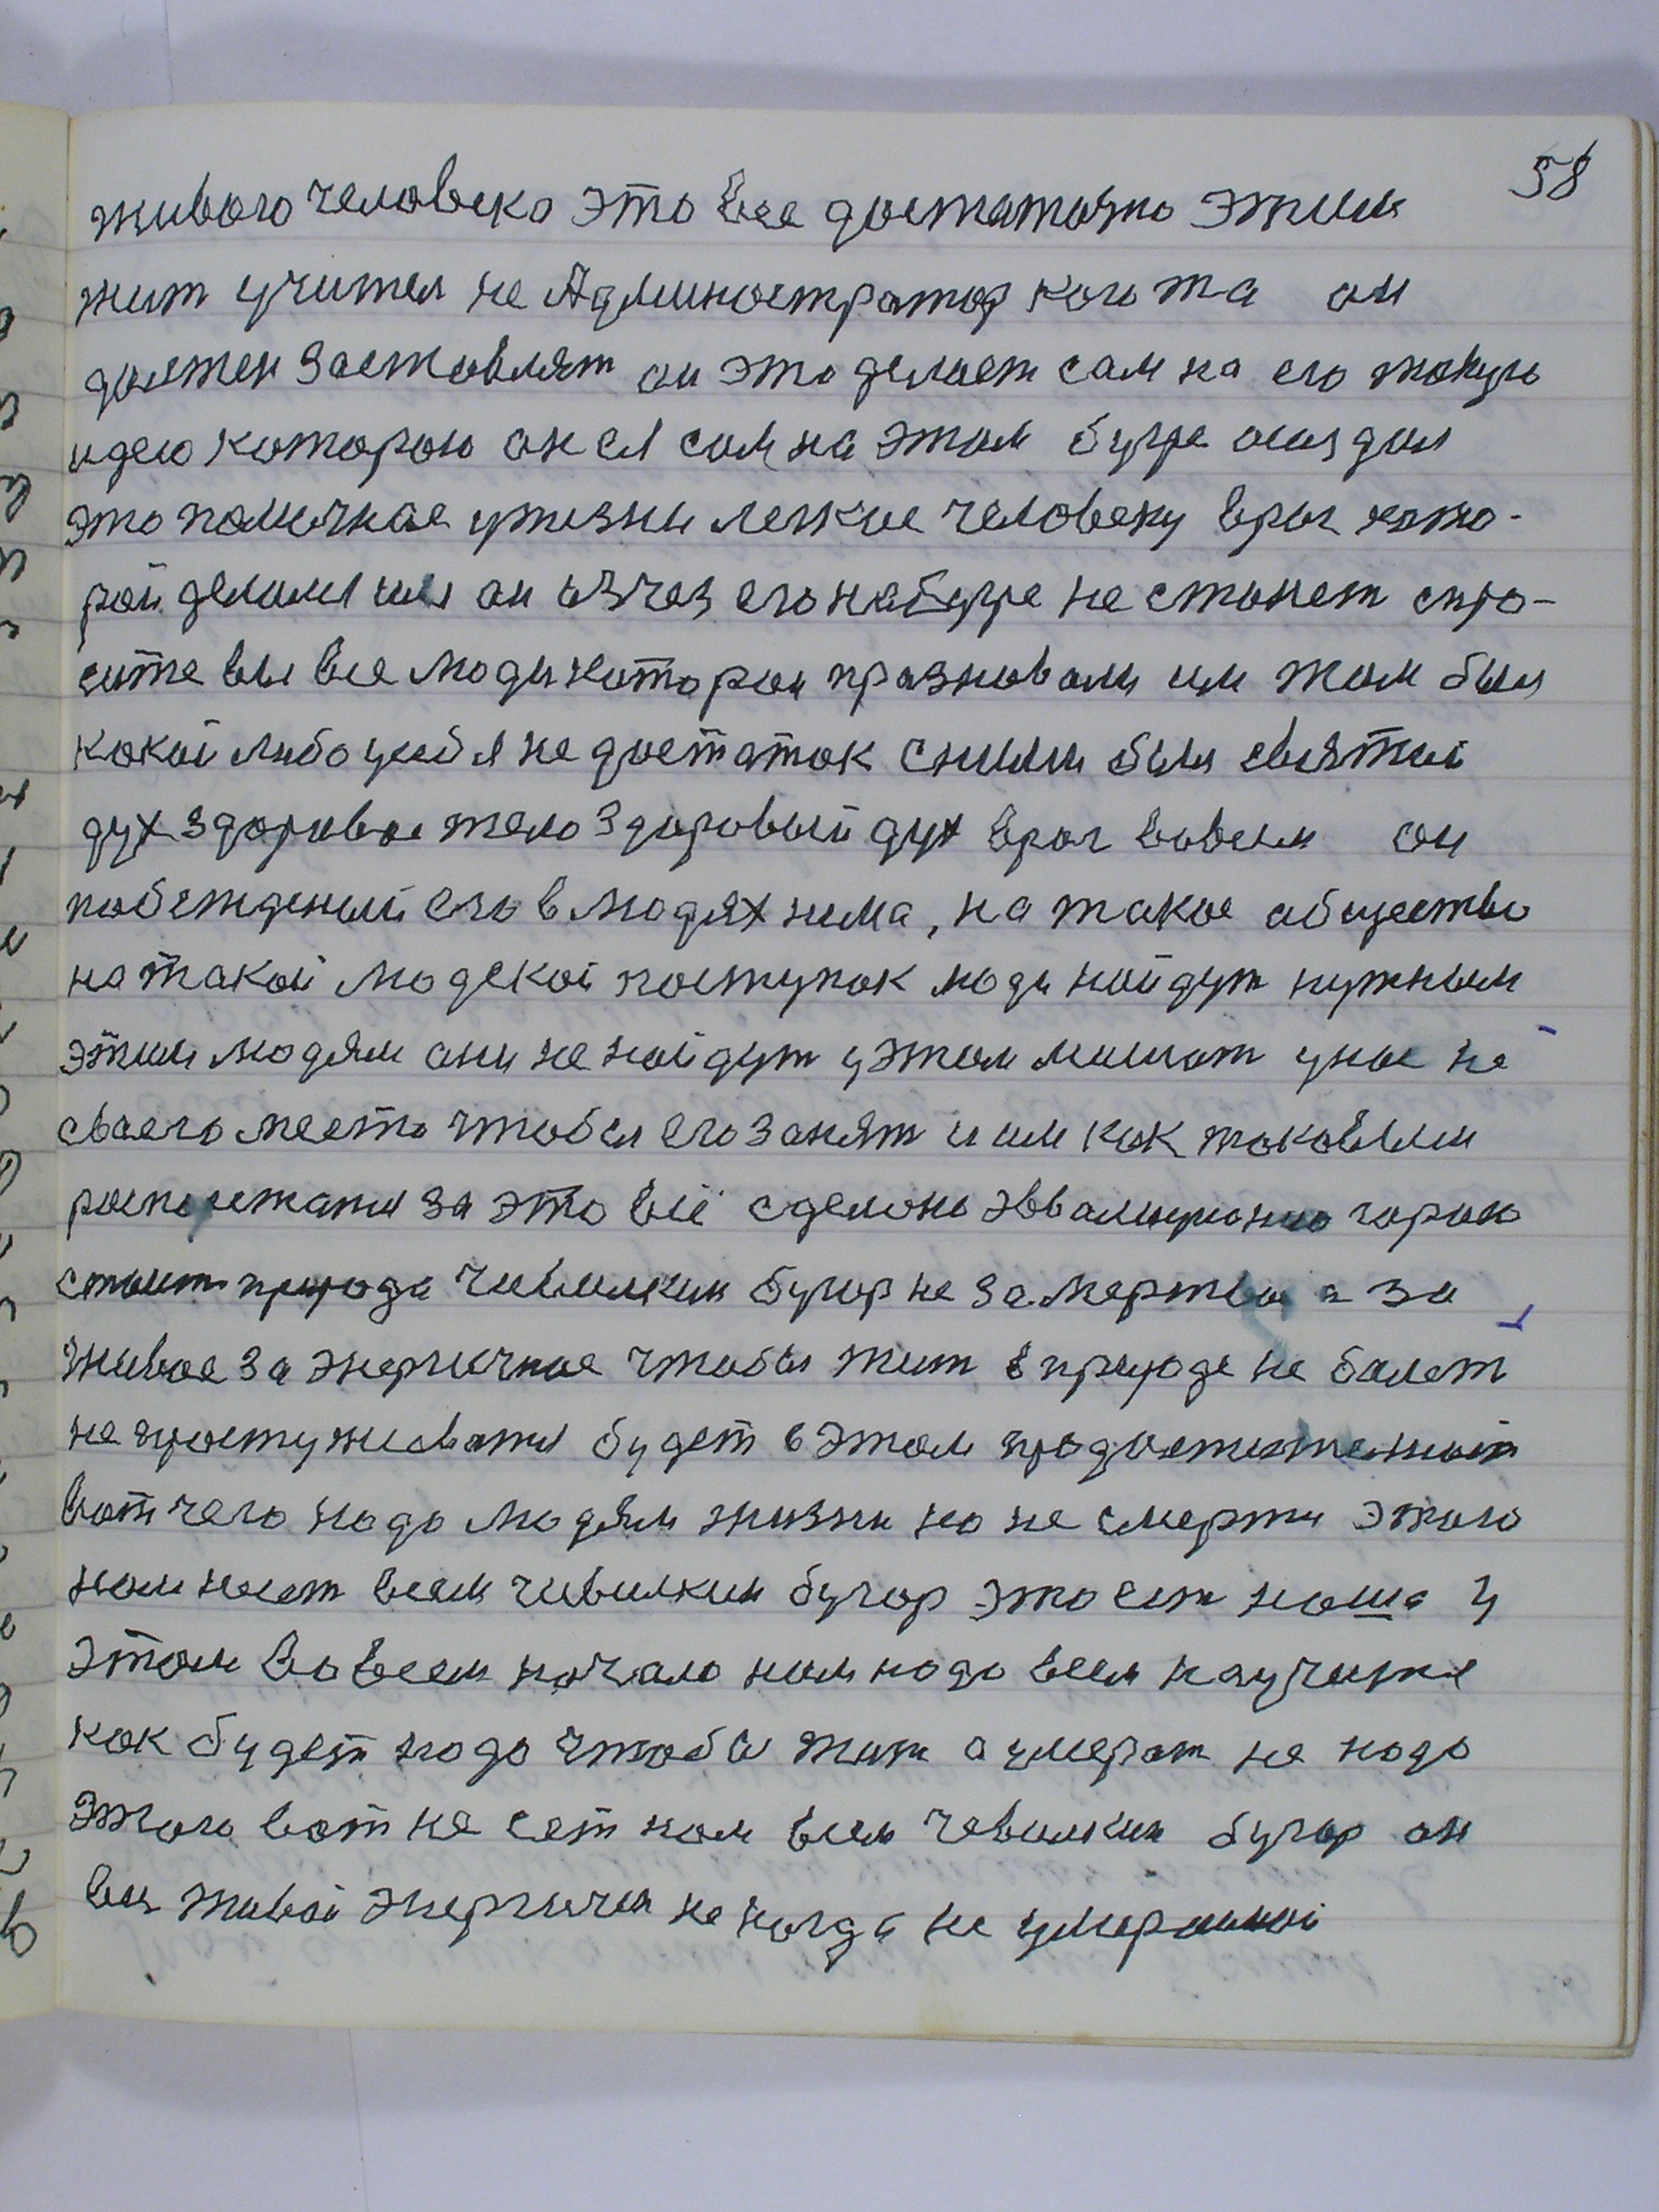 58
живого человека это все достаточно этим
жит учител не Администратор кого та он
долетен заставлят он это делает сам на его такую
идею которою он ея сам на этом бугре осиздал
это полючное ужизни легкое человеку враг кото-
рой делился им он изчез его на бугре не станет спро-
сите вы все люди которои празновали им там был
какой либо усебя недостаток снимы был святый
дух здоровое тело здоровый дух враг вовсем он
побежденый его в людях нима, на такое общество
на такой людской поступок люди найдут нужным
этим людям они не найдут у этом мешат унас не
своего место чтобы его занят и им как таковыми
за это всё сделоно эвалицыонно город
стоит природа чивилкин бугор не за мертвое а за
живое за энергичное чтобы жит в природе не болет
не простуживатся будет в этом
вот чего надо людям жизни но не смерти этого
нам несет всем чивилкин бугор это ест наша у
этом во всем начало нам надо всем научится
как будет надо чтобы жит а умерат не надо
этого вот несет нам всем чевилкин бугор он
вес живой энергичен не когда не умераимой